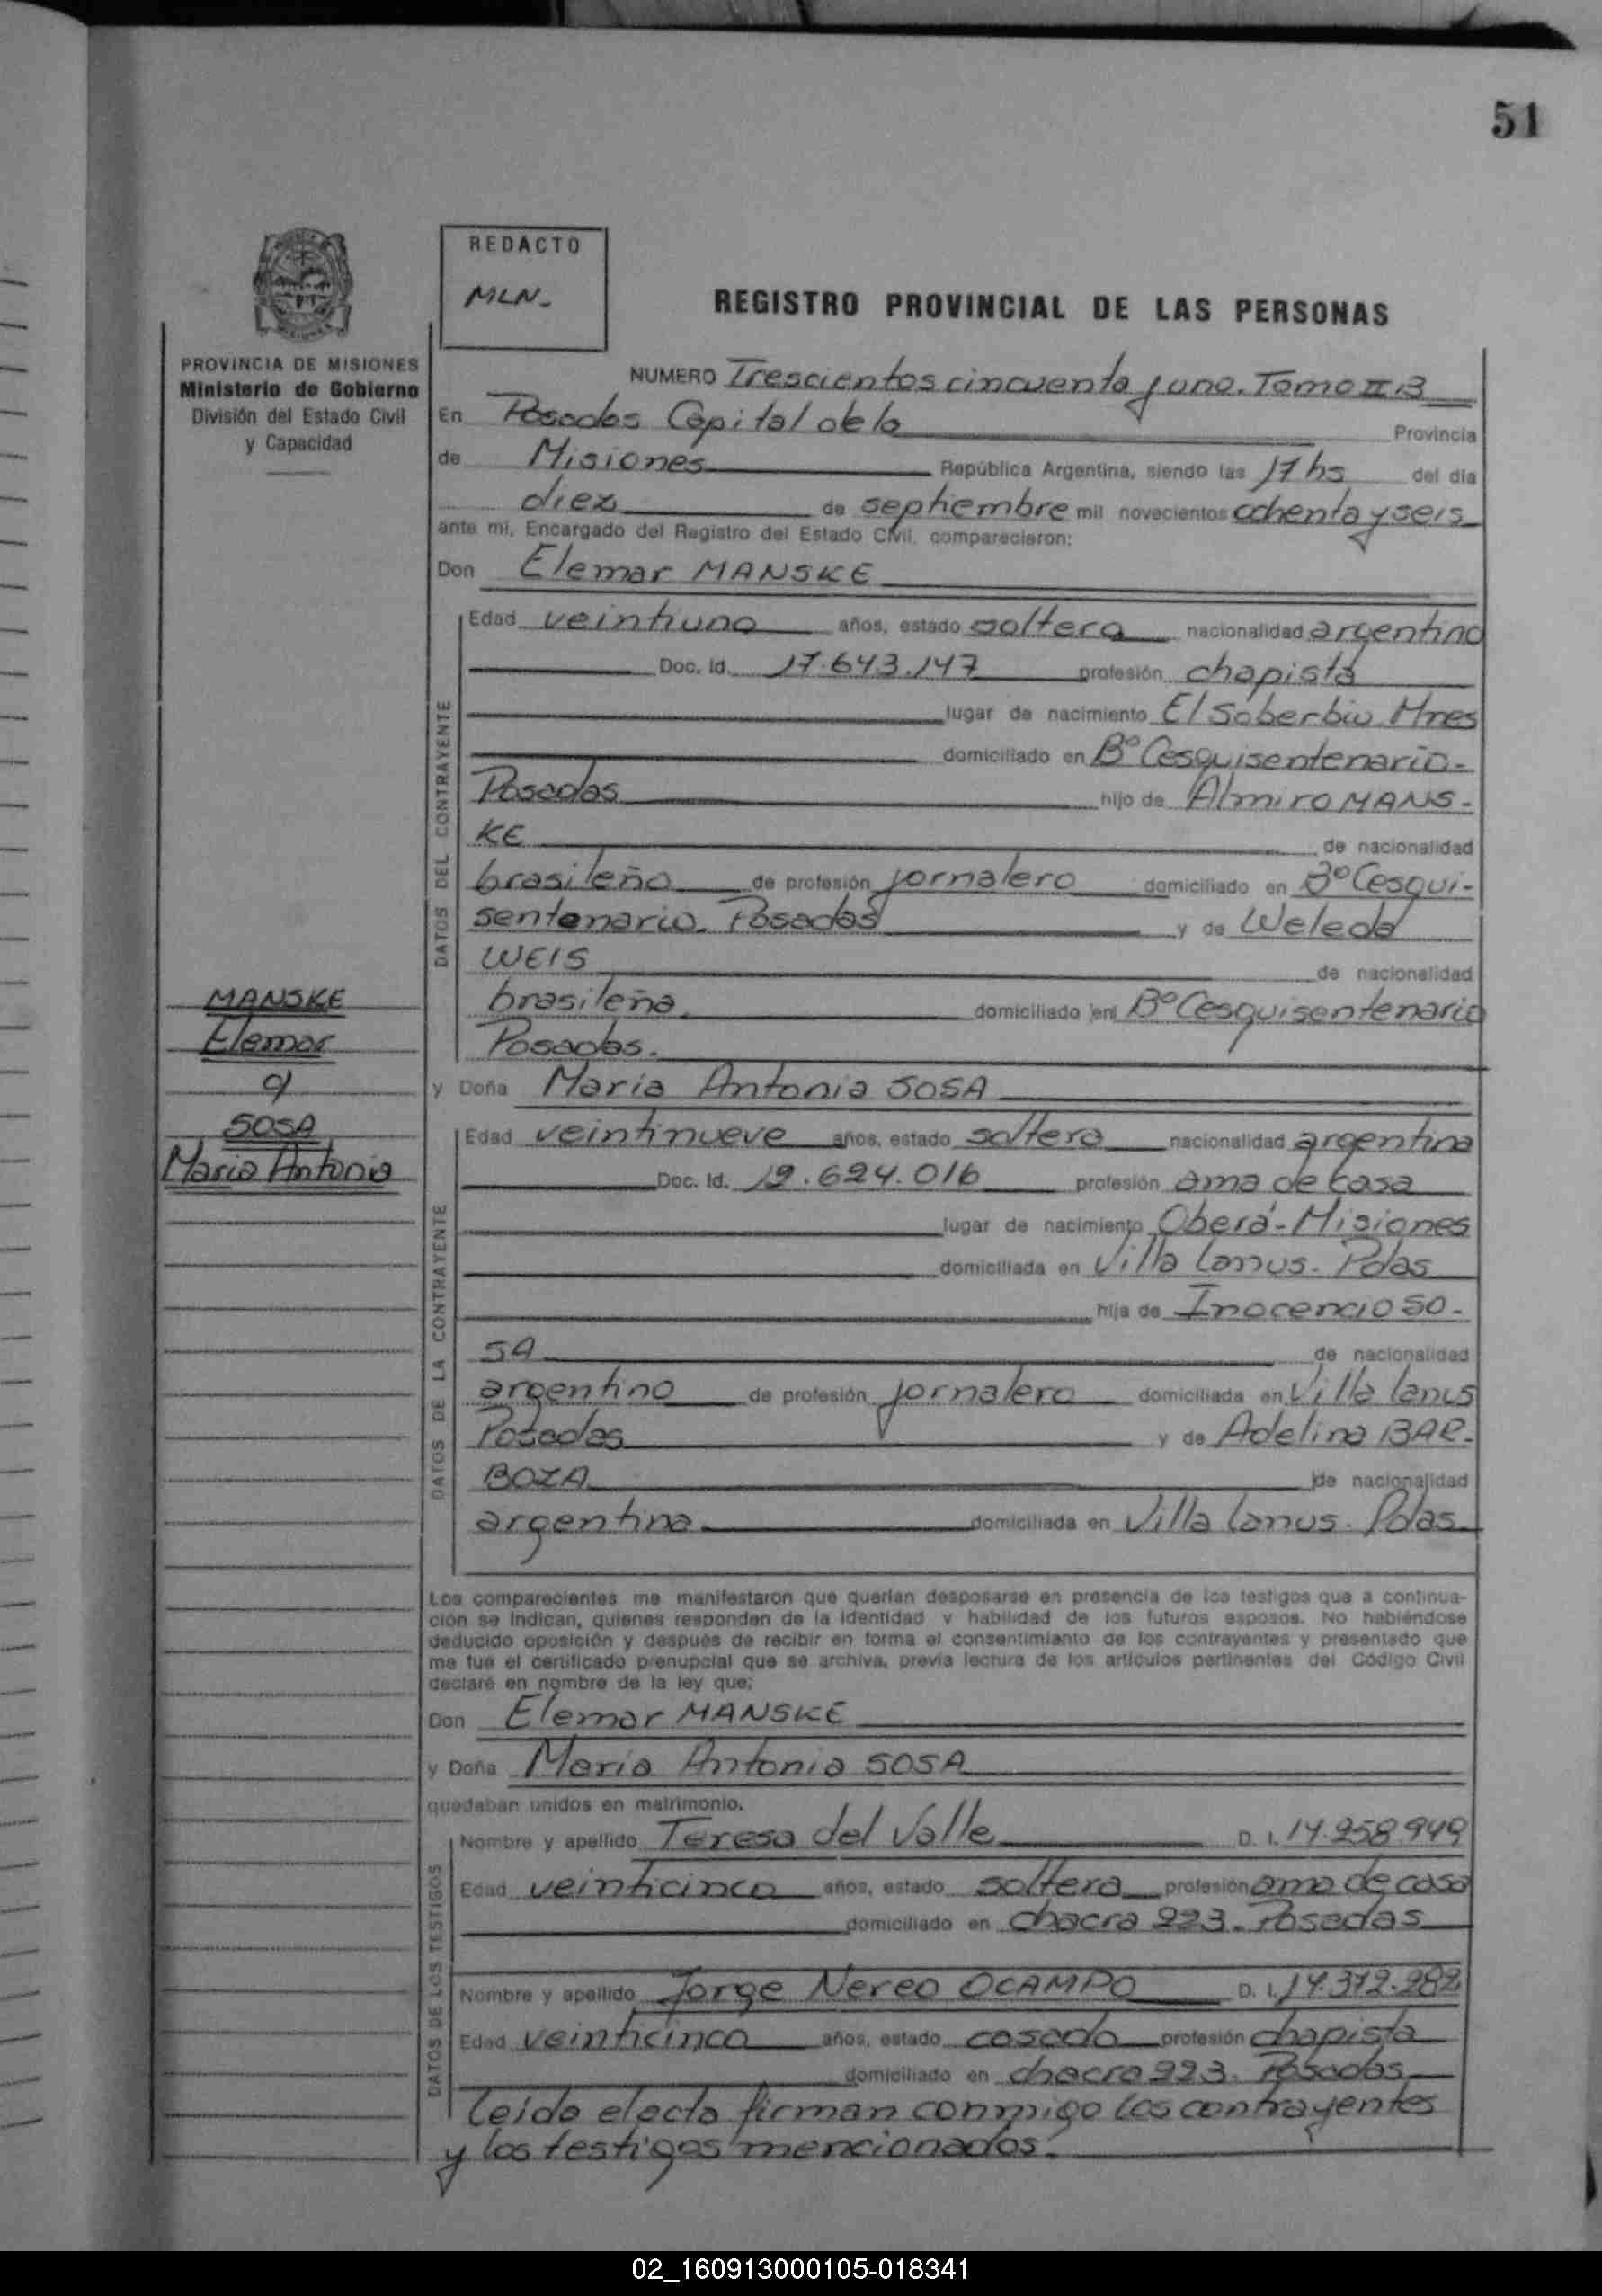 51
REDACTO
MLN-
REGISTRO PROVINCIAL DE LAS PERSONAS
PROVINCIA DE MISIONES
Ministerio de Gobierno
División del Estado Civil
y Capacidad
NUMERO Trescientos cincuenta y uno. Tomo II B
En Posadas Capital de la Provincia
de Misiones República Argentina, siendo las 17 hs del día
diez de septiembre mil novecientos ochenta y seis
ante mí, Encargado del Registro del Estado Civil, comparecieron:
Don Elemar MANSKE
DATOS DEL CONTRAYENTE
Edad veintiuno años, estado soltero nacionalidad argentino
Doc. Id. 17.643.147 profesión chapista
lugar de nacimiento El Soberbio Mnes
domiciliado en Bº Cesquisentenario-
Posadas hijo de Almiro MANS-
KE de nacionalidad
brasileño de profesión jornalero domiciliado en Bº Cesqui-
sentenario. Posadas y de Weleda
WEIS de nacionalidad
brasileña domiciliado en Bº Cesquisentenario
Posadas.
MANSKE
Elemar
c/
SOSA
Maria Antonia
y Doña Maria Antonia SOSA
DATOS DE LA CONTRAYENTE
Edad veintinueve años, estado soltera nacionalidad argentina
Doc. Id. 12.624.016 profesión ama de casa
lugar de nacimiento Oberá-Misiones
domiciliada en Villa Lanus. Pdas
hija de Inocencio SO-
SA de nacionalidad
argentino de profesión jornalero domiciliada en Villa Lanus
Posadas y de Adelina BAR-
BOZA de nacionalidad
argentina domiciliada en Villa Lanus. Pdas
Los comparecientes me manifestaron que querían desposarse en presencia de los testigos que a continua-
ción se indican, quienes responden de la identidad y habilidad de los futuros esposos. No habiéndose
deducido oposición y después de recibir en forma el consentimianto de los contrayentes y presentado que
me fue el certificado prenupcial que se archiva, previa lectura de los artículos pertinentes del Código Civil
declaré en nombre de la ley que:
Don Elemar MANSKE
y Doña Maria Antonia SOSA
quedaban unidos en matrimonio.
DATOS DE LOS TESTIGOS
Nombre y apellido Teresa del Valle D. I. 14.258.949
Edad veinticinco años, estado soltera profesión ama de casa
domiciliado en chacra 223. Posadas
Nombre y apellido Jorge Nereo OCAMPO D. I. 14.372.282
Edad veinticinco años, estado casado profesión chapista
domiciliado en chacra 223. Posadas
Leida el acta firman conmigo los contrayentes
y los testigos mencionados.
02_160913000105-018341